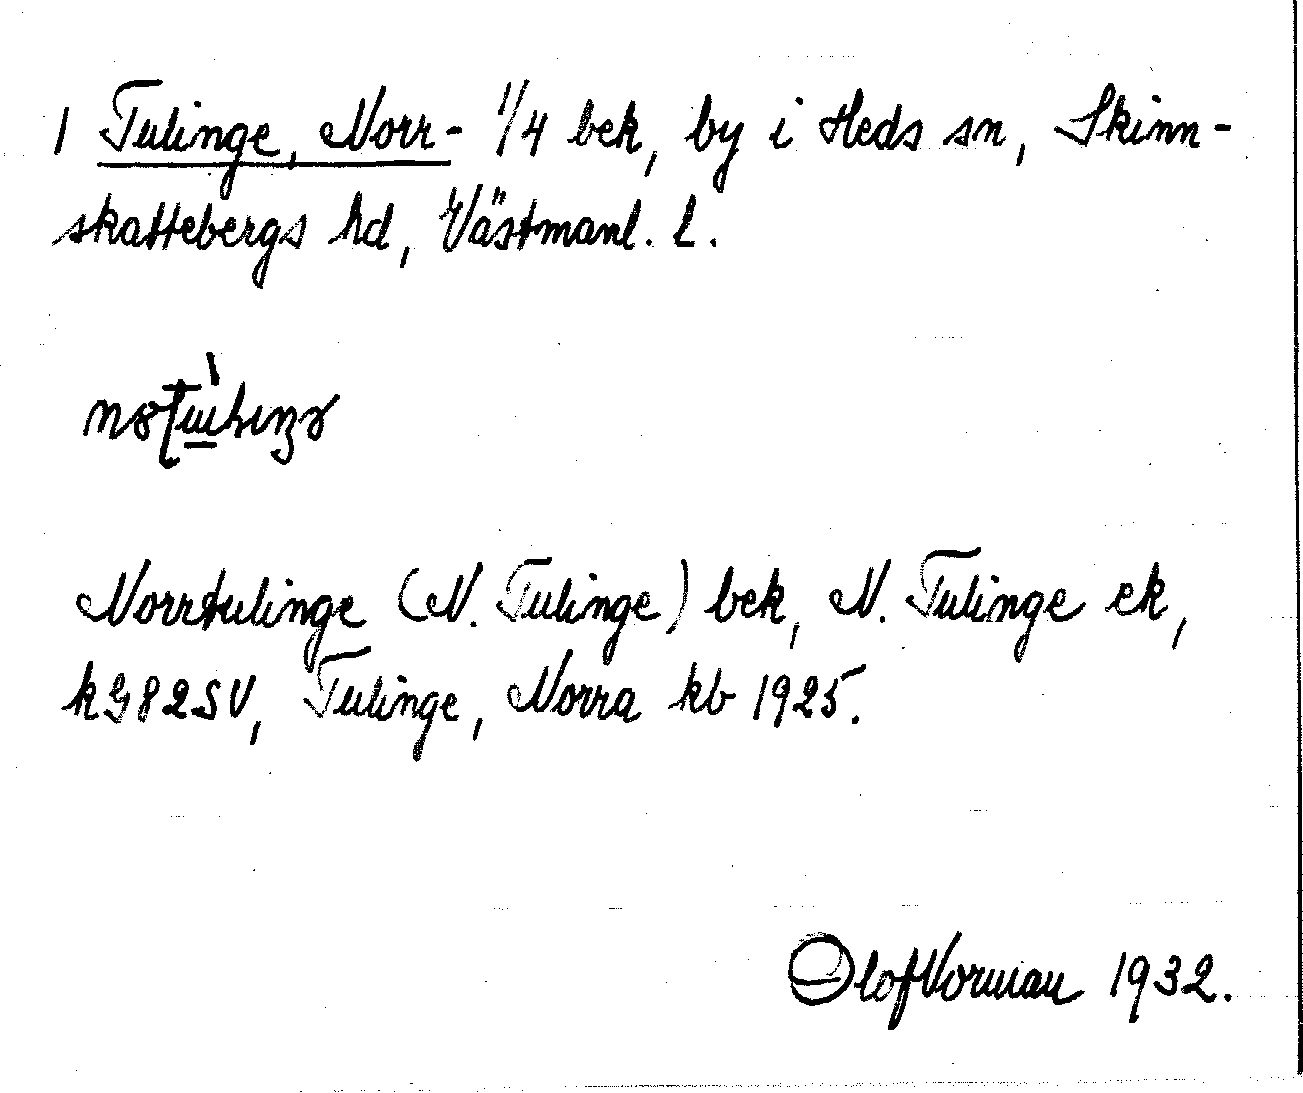 1 Tulinge, Norr- 1/4 bek, by i Heds sn, Skinn-
skattebergs hd, Västmanl. l.
Norrtulinge (N. Tulinge) bek, N. Tulinge ek,
kG82SV, Tulinge, Norra kb 1925.
Olof Norman 1932.